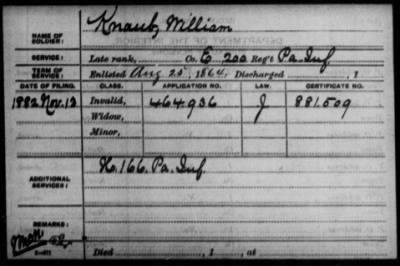 NAME OF SOLDIER: Knaub, William
DEPARTMENT OF THE INTERIOR
SERVICE: Late rank, Co. E 200 Reg't Pa. Inf.
TERM OF SERVICE: Enlisted Aug 25, 1864, Discharged , 1
DATE OF FILING. CLASS. APPLICATION NO. LAW. CERTIFICATE NO.
1882 Nov. 13 Invalid, 464,936 J 881,509
Widow,
Minor,
ADDITIONAL SERVICES: H. 166. Pa. Inf.
REMARKS:
Died , 1 , at